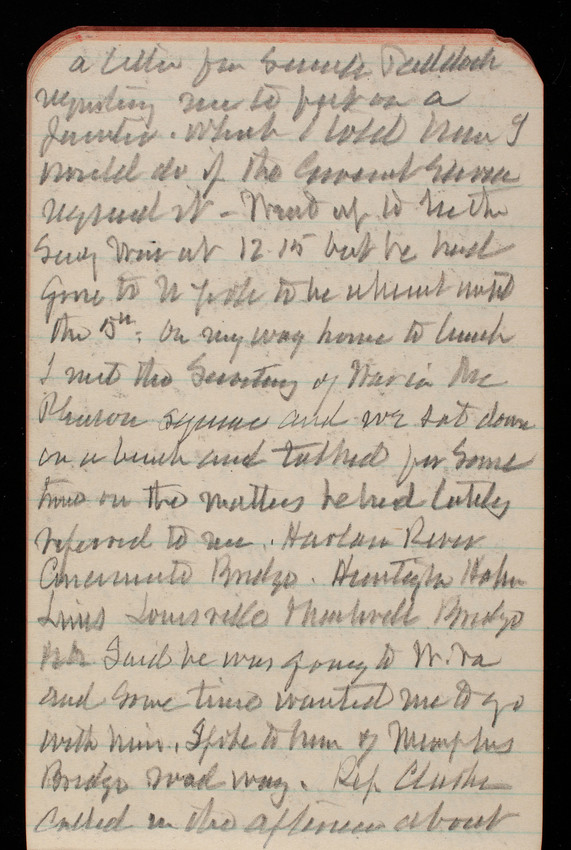 a letter from Paddock
requesting me to put on a
which I told him I
would do if the
it - Went up to see the
Secy War at 12.15 but he had
gone to N York to be absent until
the 5th. On my way home to lunch
I met the Secretary of War in Mc
Pherson square and we sat down
on a bench and talked for some
time on the matters he had lately
referred to me. Harlem River
Cincinnati Bridge.
Lines Louisville Bridge
Said he was going to W. Va
and some time wanted me to go
with him. Spoke to him of Memphis
Bridge road way. Rep. Clarke
called in the afternoon about